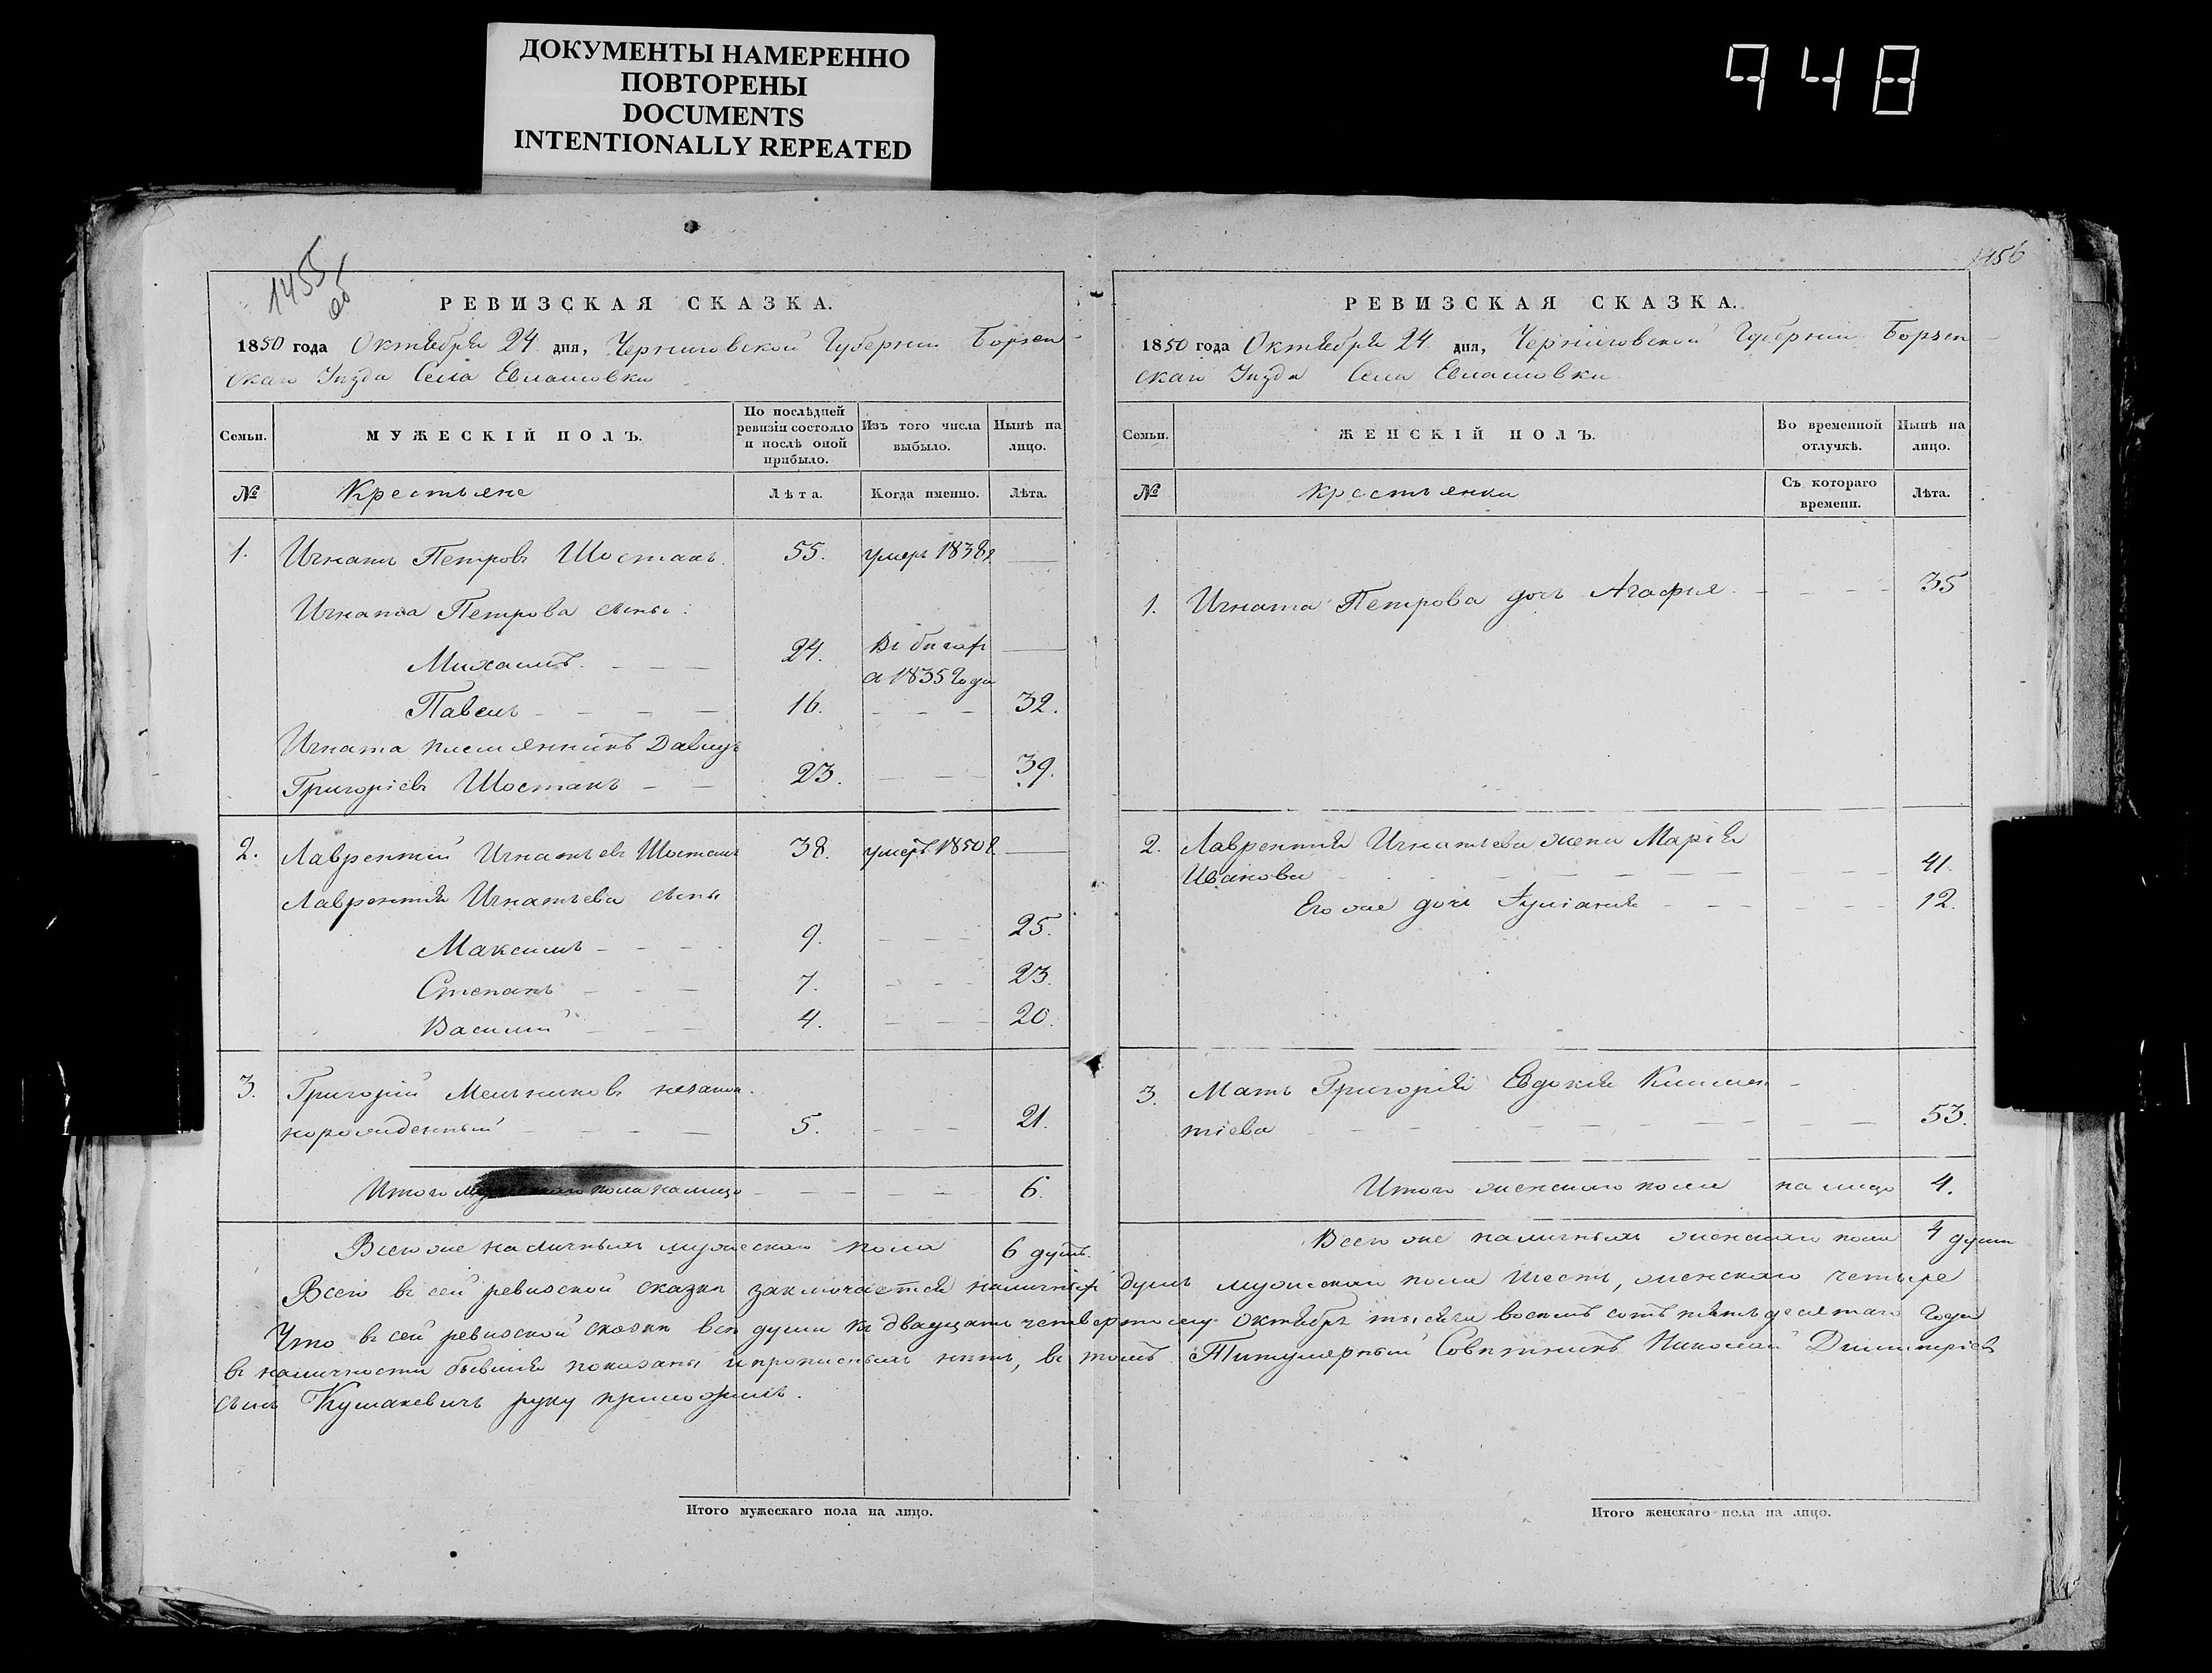 ДОКУМЕНТЫ НАМЕРЕННО
ПОВТОРЕНЫ
DOCUMENTS
INTENTIONALLY REPEATED
948
1455
об
РЕВИЗСКАЯ СКАЗКА.
1850 года Октября 24 дня, Черниговской Губерніи Борзен
скаго Уѣзда Села Евлашовки
Семьи.
МУЖЕСКІЙ ПОЛЪ.
По послѣдней
ревизіи состояло
и послѣ оной
прибыло.
Изъ того числа
выбыло.
Нынѣ на
лицо.
№
Крестьяне
Лѣта.
Когда именно.
Лѣта.
1. Игнатъ Петровъ Шостакъ. 55. умеръ 1838г —
Игната Петрова сыны:
Михаилъ. — — — 24. Въ бѣгахъ —
с 1835 Года
Павелъ — — — — 16. — — — 32.
Игната племянникъ Давидъ
Григоріевъ Шостакъ — — 23. — — — 39.
2. Лаврентій Игнатьевъ Шостакъ 38. умеръ 1850г. —
Лаврентія Игнатьева сыны
Максимъ — — — — 9. — — — 25.
Степанъ — — — 7. — — — 23.
Василій — — — 4. — — — 20.
3. Григорій Мельниковъ незакон.
норожденный — — — — 5. — — — 21.
Итого мужескаго пола налицо — — — — — 6.
Всего же наличныхъ мужескаго пола 6 душъ.
1456
РЕВИЗСКАЯ СКАЗКА.
1850 года Октября 24 дня, Черниговской Губерніи Борзен
скаго Уѣзда Села Евлашовки
Семьи.
ЖЕНСКІЙ ПОЛЪ.
Во временной
отлучкѣ.
Нынѣ на
лицо.
№
Крестьянки
Съ котораго
времени.
Лѣта.
1. Игната Петрова дочь Агафія — — — — 35
2. Лаврентія Игнатьева жена Марія
Иванова — — — — — — — — 41.
Его же дочь Іуліанія — — — — — — 12.
3. Мать Григорія Евдокія Климен —
тіева — — — — — — — — — 53.
Итого женскаго пола на лицо 4.
Всего же наличныхъ женскаго пола 4 души
Всего въ сей ревизской сказкѣ заключается наличныхъ душъ мужескаго пола шесть, женскаго четыре
Что въ сей ревизской сказкѣ всѣ души къ двадцать четвертому Октября тысяча восемь сотъ пятьдесятаго Года
въ наличности бывшія показаны и прописныхъ нѣтъ, въ томъ Титулярный Совѣтникъ Николай Димитріевъ
сынъ Кушакевичъ руку приложилъ.
Итого мужескаго пола на лицо.
Итого женскаго пола на лицо.